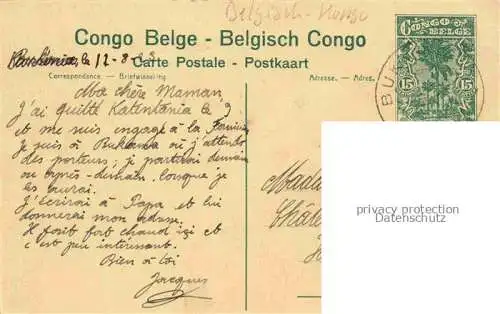 Belgisch-Kongo
Congo Belge - Belgisch Congo
Carte Postale - Postkaart
CONGO BELGE
15 15
BU
le 12-8-
Correspondance. — Briefwisseling
Adresse. — Adres.
Ma chère Maman,
J'ai quitté Katentania le 9
et me suis engagé à la
Je suis à Bukama où j'attends
des porteurs; je partirai demain
ou après-demain lorsque je
les aurai.
J'écrirai à Papa et lui
donnerai mon adresse.
Il fait fort chaud ici et
c'est peu intéressant.
Bien à toi
Jacques
Mada
Châl
privacy protection
Datenschutz